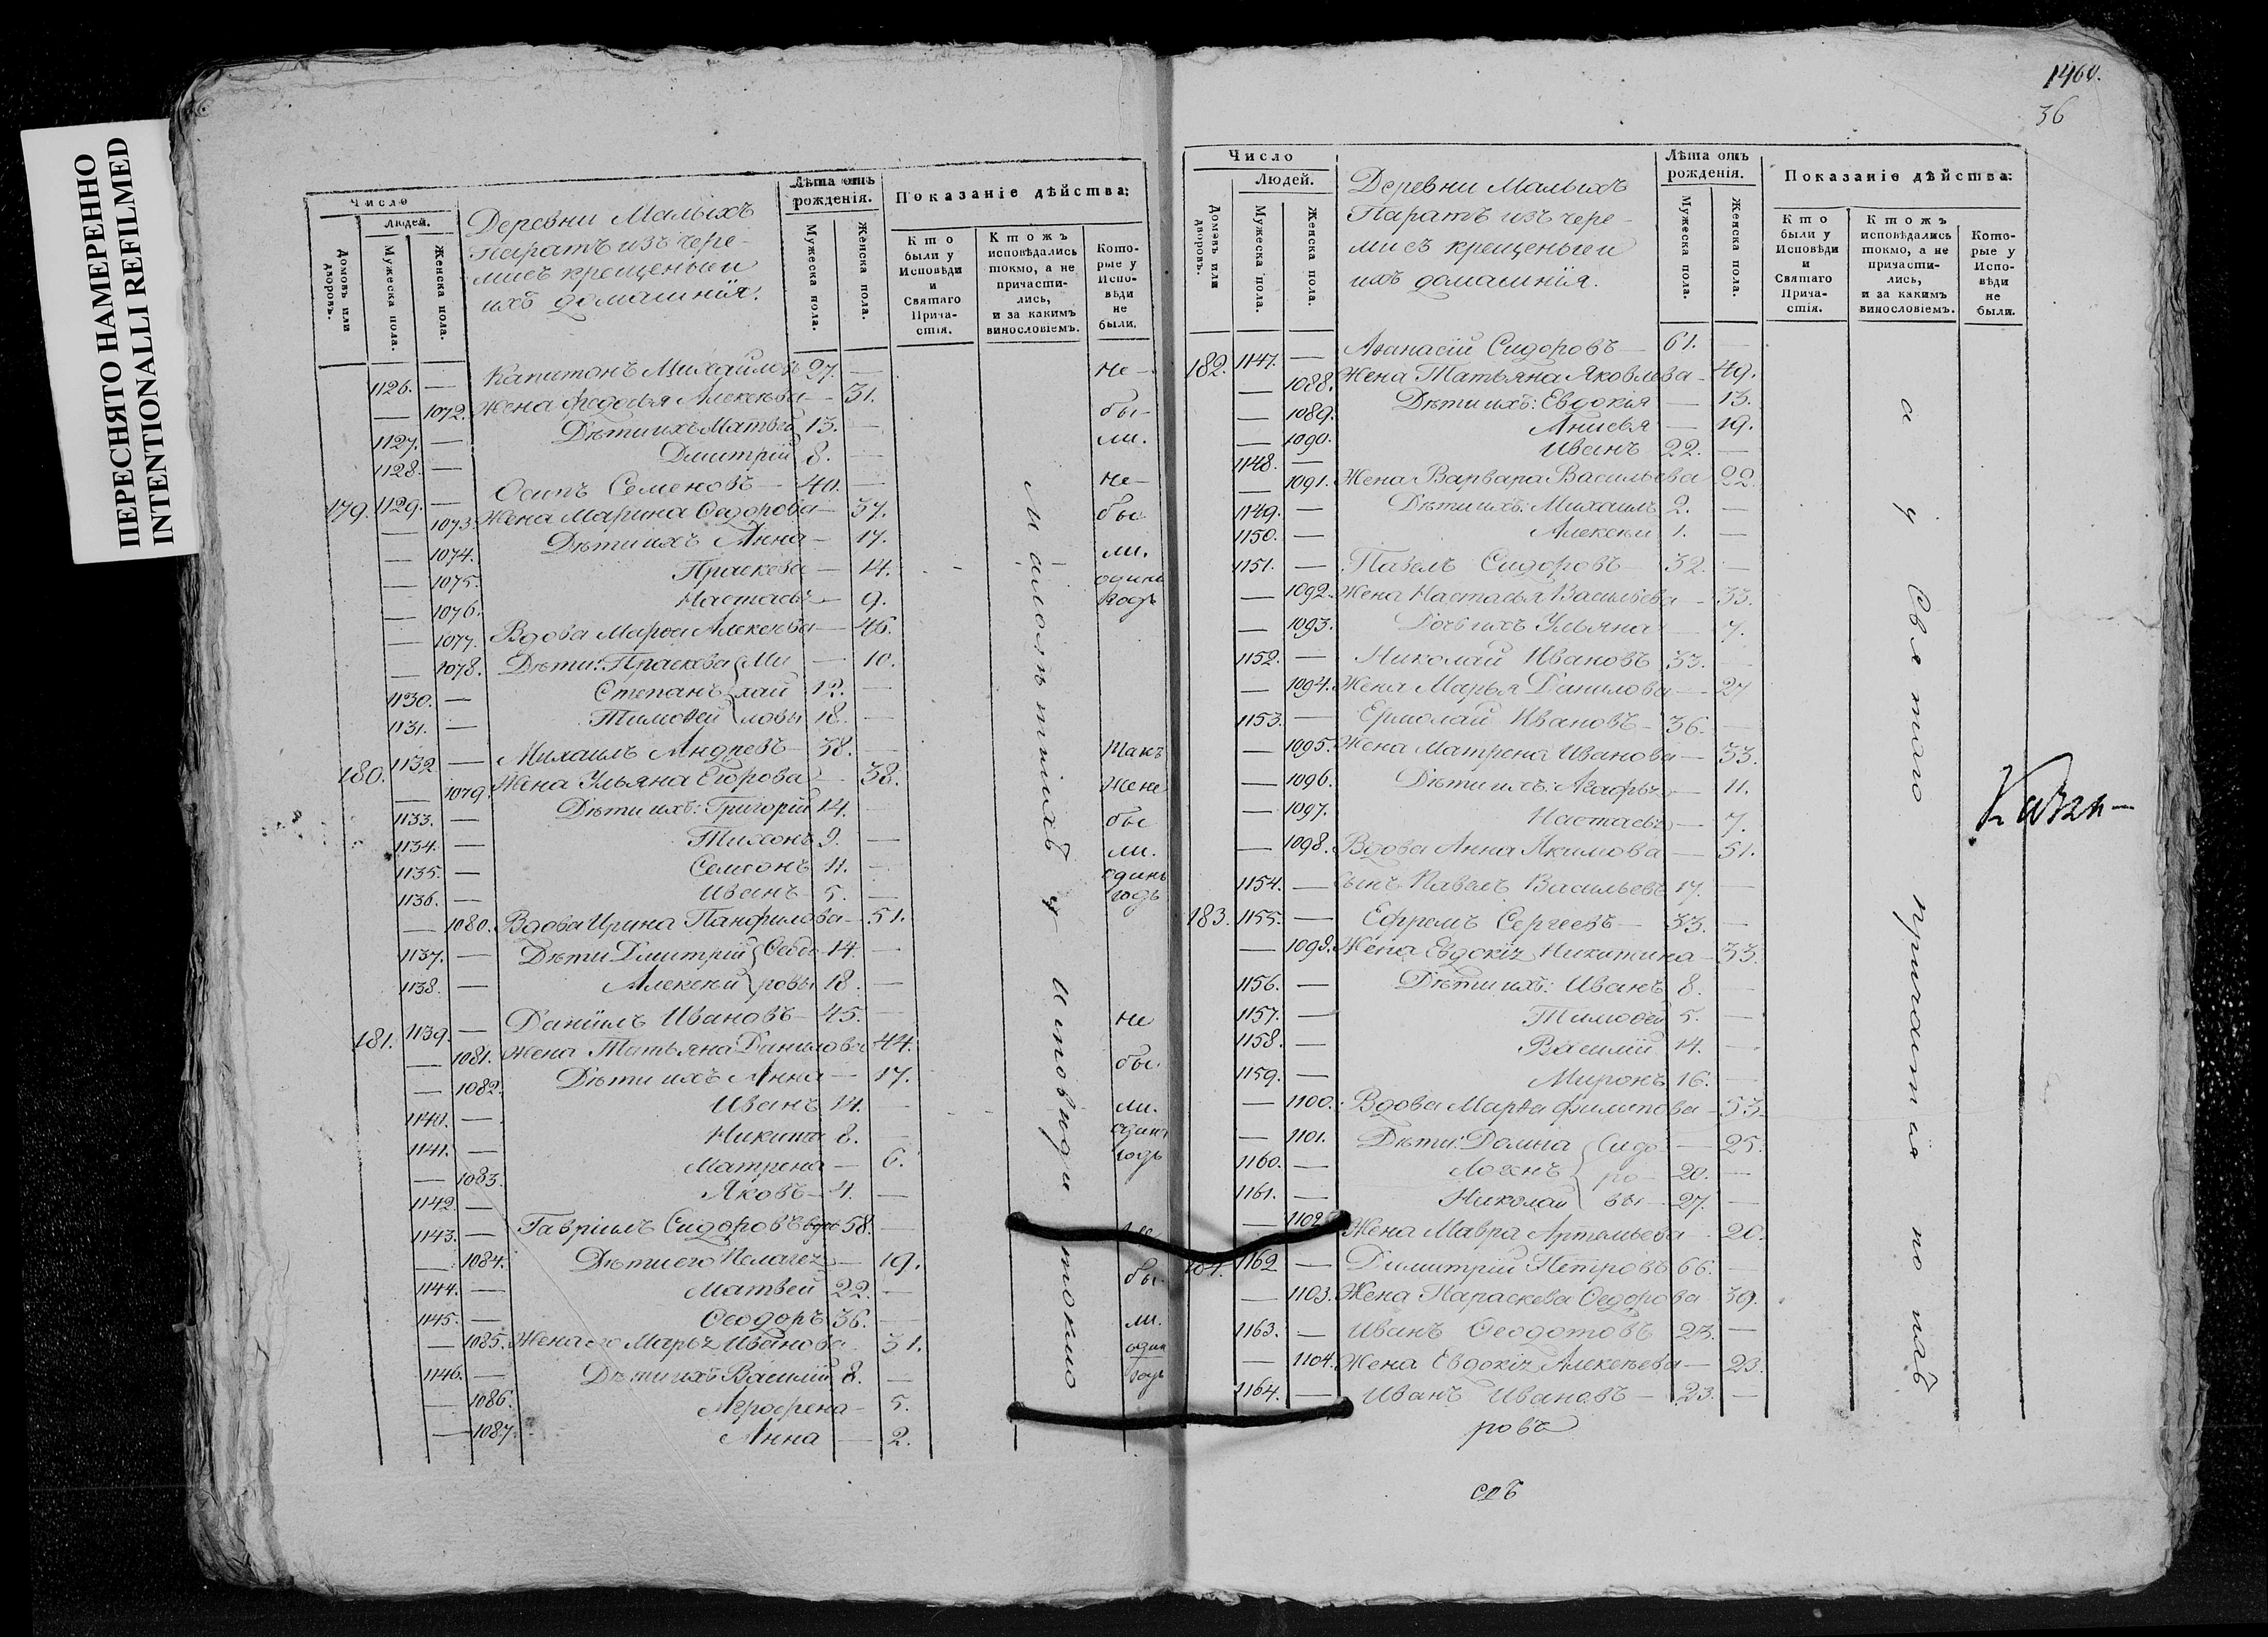 ПЕРЕСНЯТО НАМЕРЕННО
INTENTIONALLI REFILMED
Число
Людей.
Домовъ или дворовъ.
Мужеска пола.
Женска пола.
Деревни Малыхъ
Паратъ изъ чере-
мисъ крещеныеи
ихъ домашнiя.
Лѣта отъ рожденія.
Мужеска пола.
Женска пола.
Показаніе дѣйства:
Кто были у Исповѣди и Святаго Причастія.
Ктожъ исповѣдались токмо, а не причастились, и за какимъ винословіемъ.
Которые у Исповѣди не были.
1126. — Капитонъ Михайловъ 27. — Не-
— 1072. Жена Федосья Алексѣева — 31. бы-
1127. — Дѣти ихъ Матвей 13. — ли.
1128. — Дмитрій 8. —
179. 1129. — Осипъ Семеновъ — 40. — Не-
— 1073. Жена Марина Ѳедорова — 37. бы-
— 1074. Дѣти ихъ Анна — 17. ли.
— 1075. Праскева — 14. одинъ
— 1076. Настасья — 9. годъ
— 1077. Вдова Марѳа Алексѣева — 46.
— 1078. Дѣти: Праскева Ми — 10.
1130. — Степанъ хай 12. —
1131. — Тимоѳей ловы 18. —
180. 1132 — Михаилъ Андревъ — 38. — Такъ
— 1079. Жена Ульяна Егорова — 38. жене
1133. — Дѣти ихъ: Григорій 14. — бы
1134. — Тихонъ 9. — ли.
1135. — Семіонъ 11. — одинъ
1136. — Иванъ 5. — годъ
— 1080. Вдова Ирина Панфилова — 51.
1137. — Дѣти Дмитрій Ѳедо 14. —
1138. — Алексѣй ровы 18. —
181. 1139. — Даніилъ Ивановъ — 45. — Не
— 1081. Жена Татьяна Данилова 44. бы
— 1082. Дѣти ихъ Анна — 17.
1140. — Иванъ 14. — ли.
1141. — Никита 8. — одинъ
— 1083. Матрена — 6. годъ
1142. — Яковъ — 4. —
1143. — Гавріилъ Сидоровъ вдов 58. —
— 1084. Дѣти его Пелагея — 19.
1144. — Матвей 22. — бы
1145. — Ѳеодоръ 36. — ли.
— 1085. Жена его Марья Иванова 31. один
1146. — Дѣти ихъ Василій 8. — годъ
— 1086. Аграфена — 5.
— 1087. Анна — 2.
и исповѣди токмо
1460.
36
Число
Людей.
Домовъ или дворовъ.
Мужеска пола.
Женска пола.
Деревни Малыхъ
Паратъ изъ чере-
мисъ крещеныеи
ихъ домашнiя.
Лѣта отъ рожденія.
Мужеска пола.
Женска пола.
Показаніе дѣйства:
Кто были у Исповѣди и Святаго Причастія.
Ктожъ исповѣдались токмо, а не причастились, и за какимъ винословіемъ.
Которые у Исповѣди не были.
182. 1147. — Аѳанасій Сидоровъ — 61. —
— 1088. Жена Татьяна Яковлева — 49.
— 1089. Дѣти ихъ: Евдокія — 13.
— 1090. Анисья — 19.
1148. — Иванъ 22. —
— 1091. Жена Варвара Васильева 22.
1149. — Дѣти ихъ: Михаилъ 2. —
1150. — Алексѣй 1. —
1151. — Павелъ Сидоровъ — 32. —
— 1092. Жена Настасья Васильева — 33.
— 1093. Дочь ихъ Ульяна — 7.
1152. — Николай Ивановъ 33. —
— 1094. Жена Марья Данилова — 27
1153. — Ермолай Ивановъ — 36. —
— 1095. Жена Матрена Иванова — 33.
— 1096. Дѣти ихъ: Агафья — 11.
— 1097. Настасья — 7.
— 1098. Вдова Анна Якимова — 51.
1154. — Сынъ Павелъ Васильевъ 17. —
183. 1155. — Ефремъ Сергеевъ — 33. —
— 1099. Жена Евдокія Никитина — 33.
1156. — Дѣти ихъ: Иванъ 8. —
1157. — Тимоѳей 5. —
1158. — Василій 14. —
1159. — Миронъ 16. —
— 1100. Вдова Марѳа Филипова — 53.
— 1101. Дѣти: Домна Сидо — 25.
1160. — Логинъ ро — 20. —
1161. — Николай вы — 27. —
— 1102. Жена Мавра Артемьева 20.
184. 1162 — Димитрій Петровъ 66. —
— 1103. Жена Параскева Ѳедорова 39.
1163. — Иванъ Ѳеодотовъ 23. —
— 1104. Жена Евдокія Алексѣева — 23.
1164. — Иванъ Ивановъ — 23. —
а у Святаго причастія по